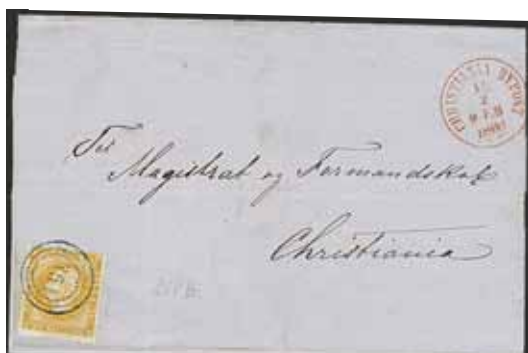 CHRISTIANIA BYPOST
Til
Magistrat og Formandskab
Christiania